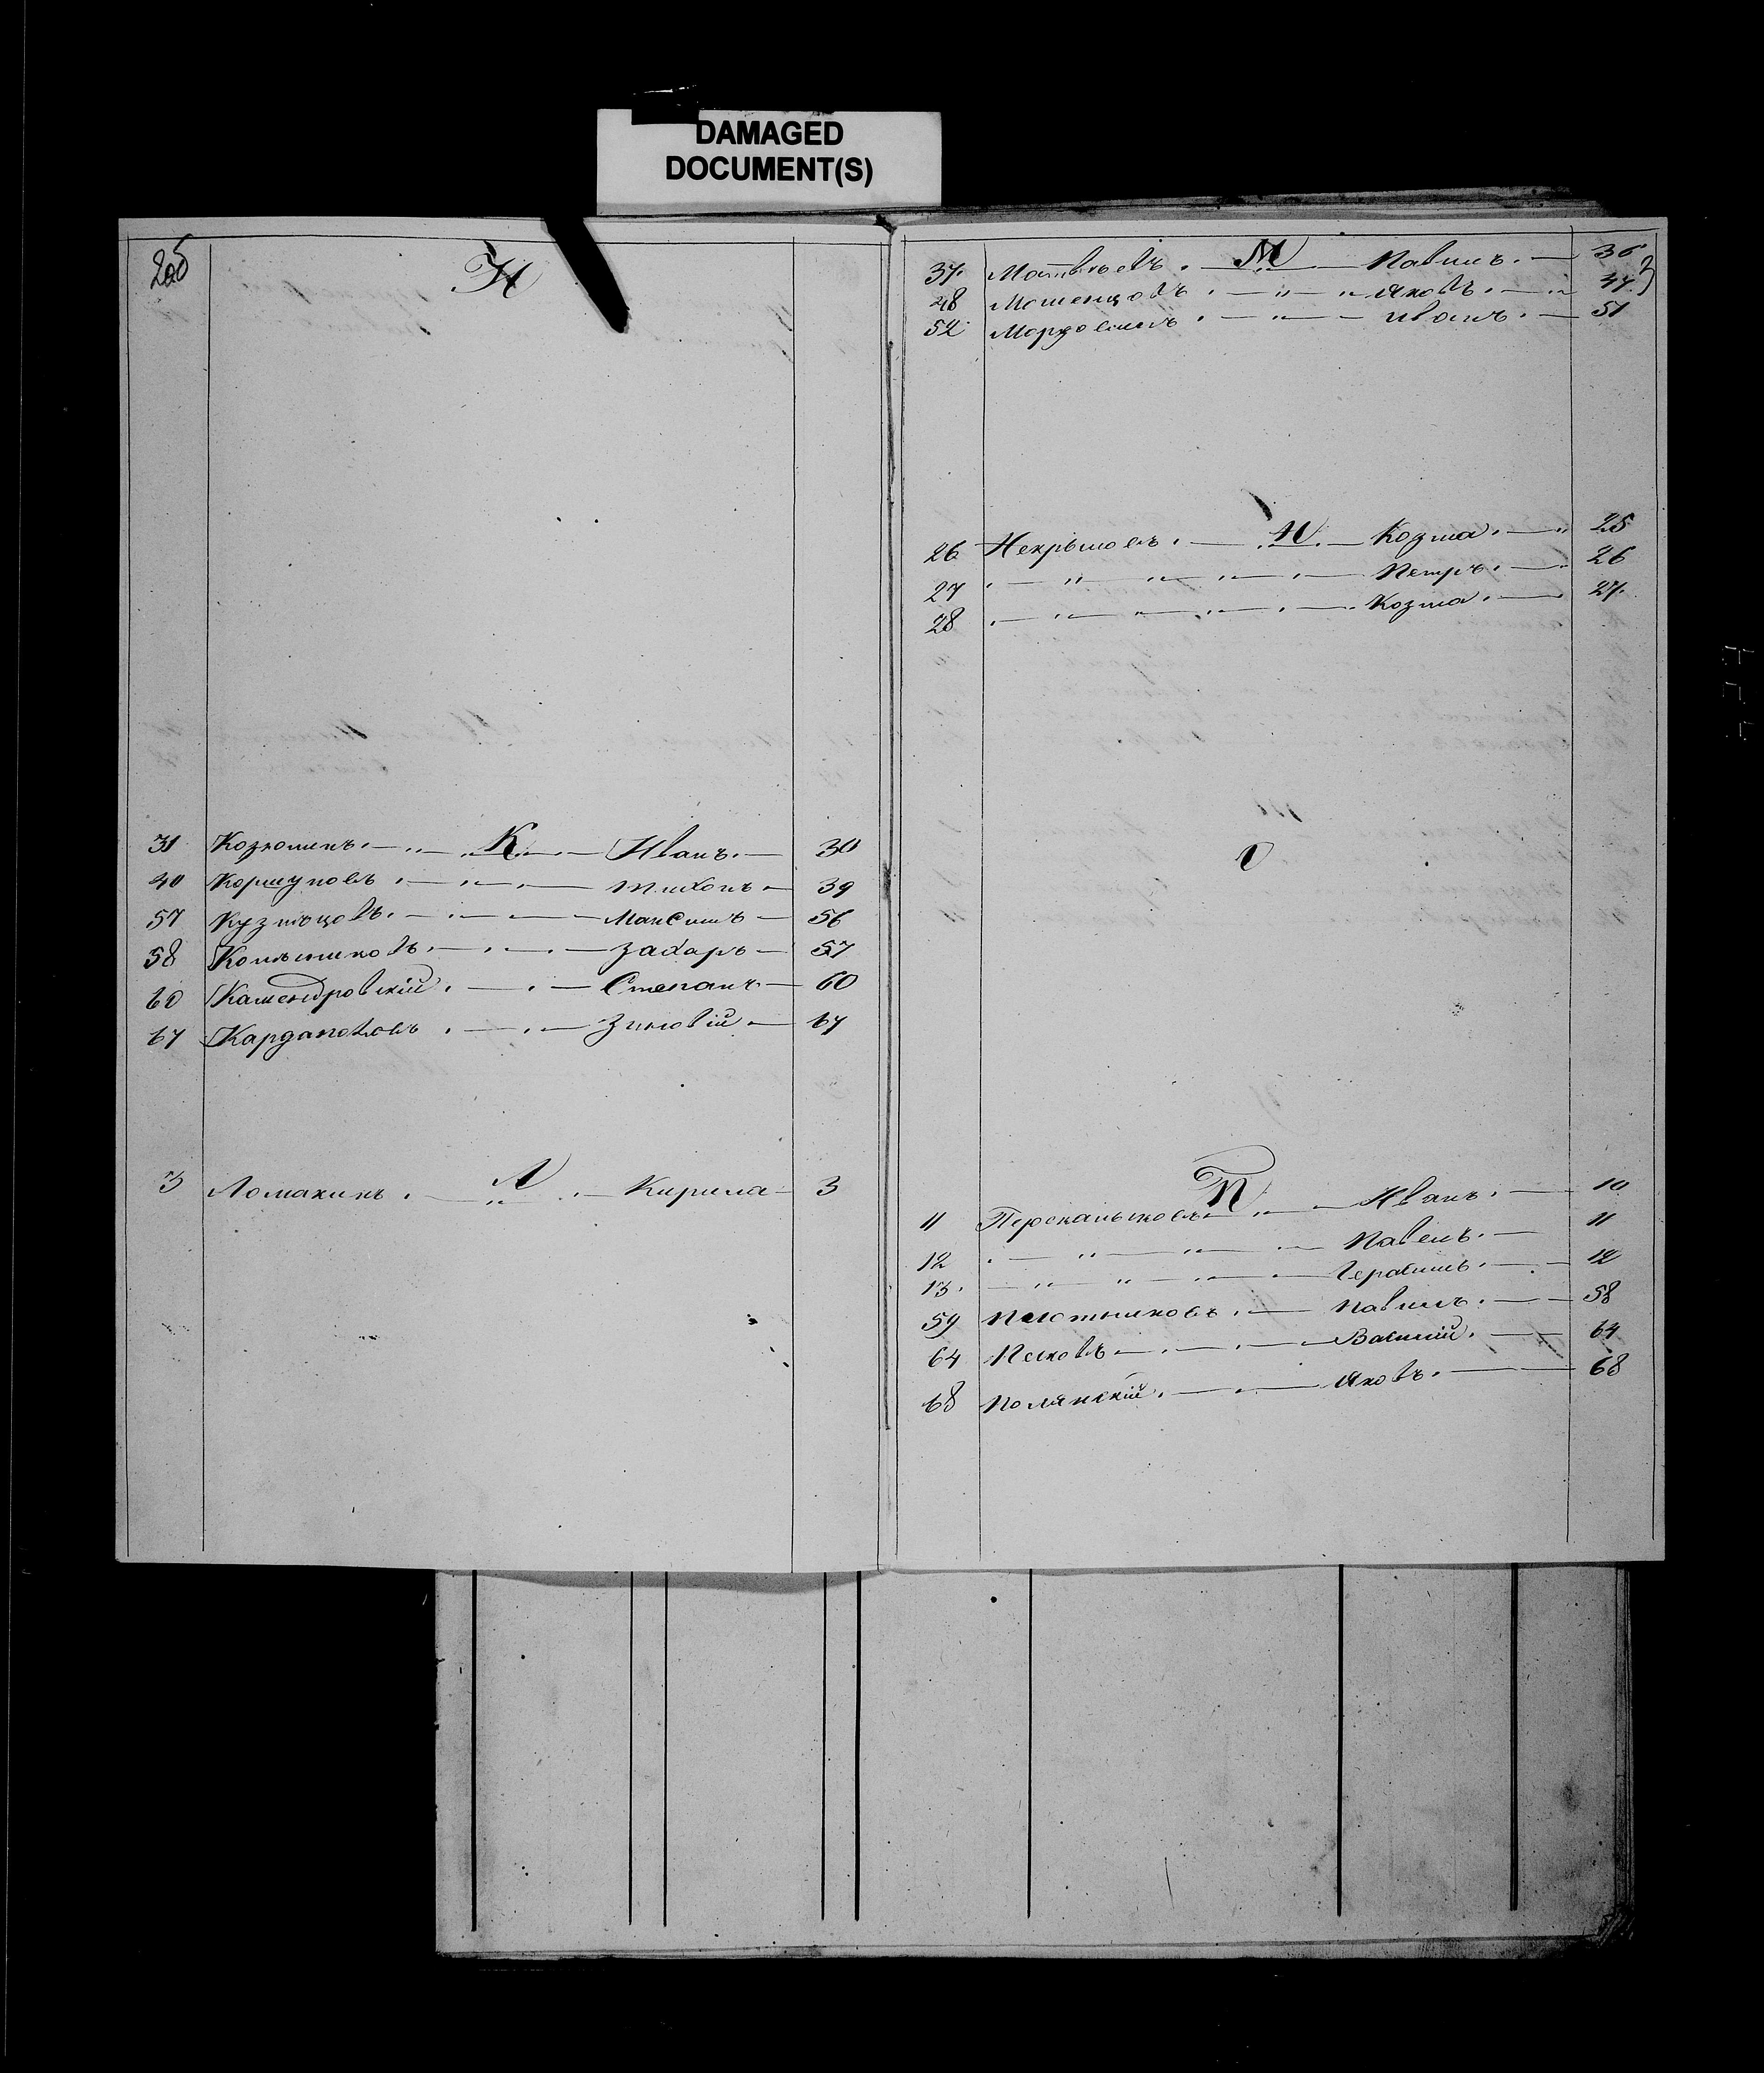 DAMAGED
DOCUMENT(S)
2об
И
31 Козюминъ. К. Иванъ. 30
40 Коршуновъ Тихонъ 39
57 Кузнецовъ. Максимъ 56
58 Захаръ 57
60 Степанъ 60
67 Зиновій 67
3 Ломакинъ. Л Кирила 3
37. Матвѣевъ. М Павилъ. 36
48 Яковъ. 47
52 Мордовинъ Иванъ. 51
26 Некрыловъ. Н. Козма. 25
27 " " " Петръ. 26
28 " " " Козма. 27.
О
П
11 Иванъ. 10
12 " " Павелъ. 11
13. " " " Герасимъ. 12
59 Плотниковъ. Павилъ. 58
64 Песковъ Василій. 64
68 Полянскій. Яковъ. 68